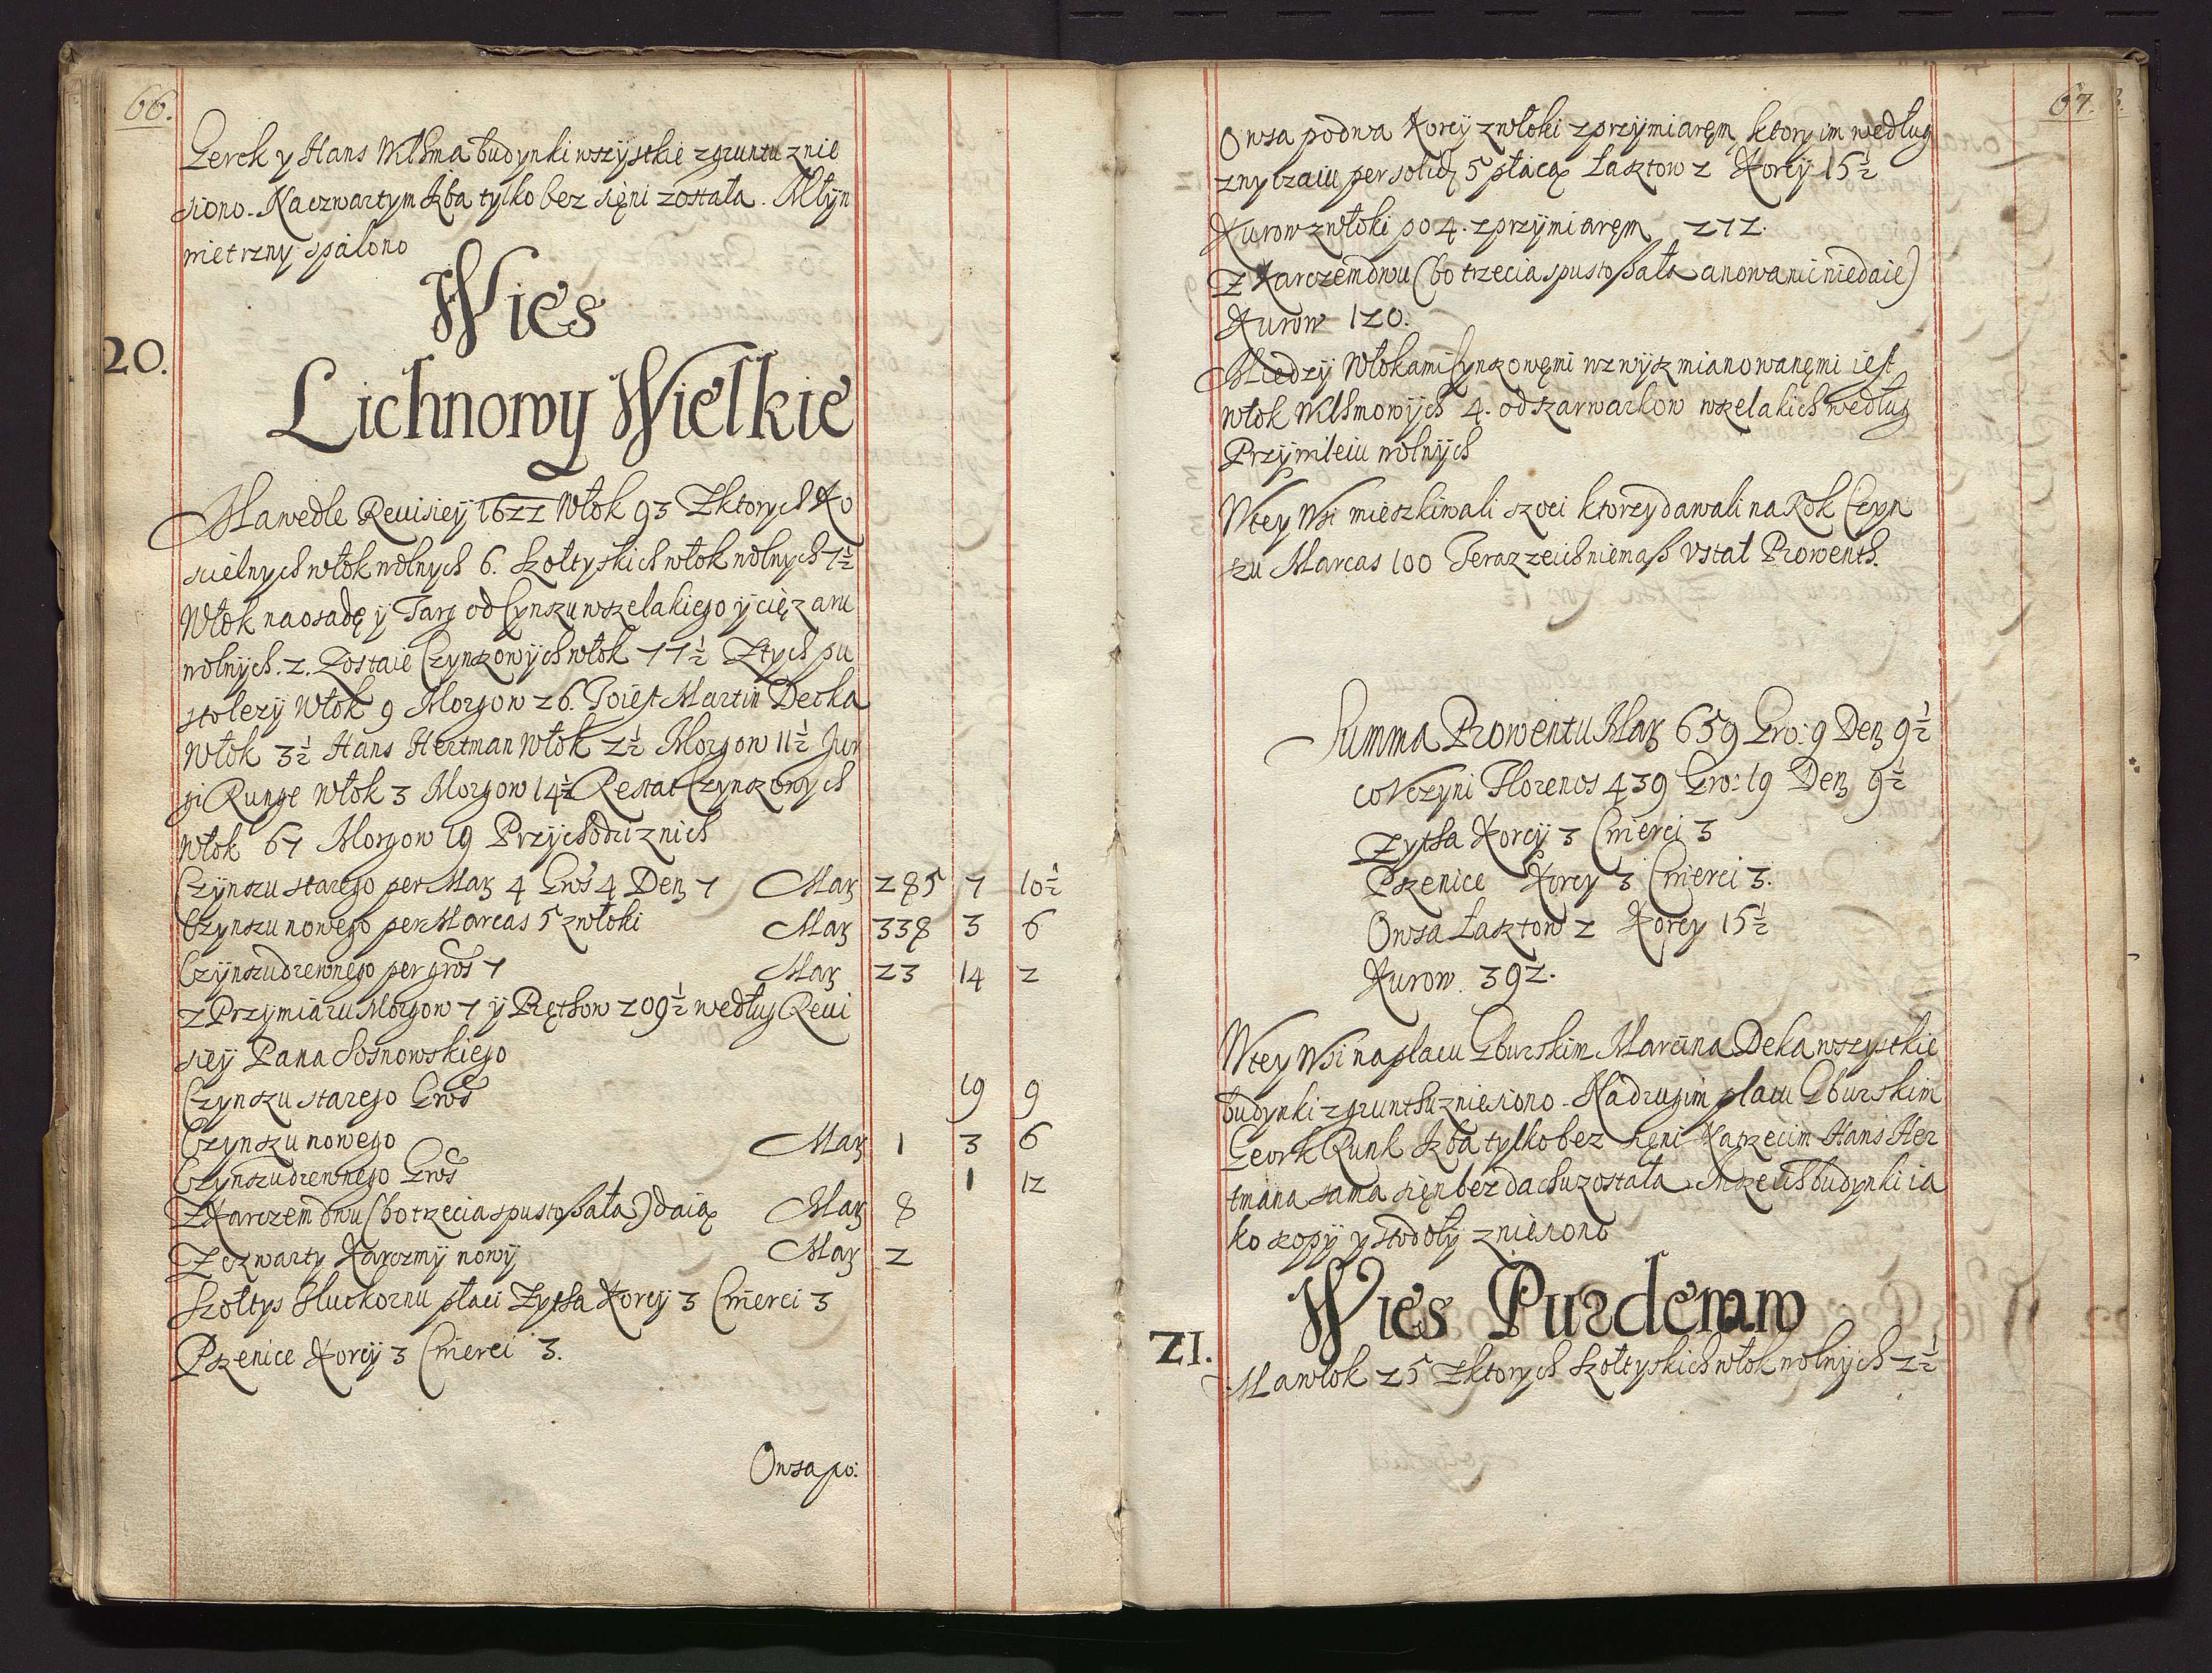 66.
Gerck y Hans Wilhma budynki wszystkie z gruntu znie
siono. Na czwartym Izba tylko bez sięni została. Młÿn
wietrzny spalono
Wies
20.
Lichnowy Wielkie
Ma wedle Reuisieÿ 1622 Włok 93 Z ktorych Ko
scielnych włok wolnych 6. Szołtyskich włok wolnych 7½
Włok na osadę y Targ od Cynszu wszelakiego ÿ cięzaru
wolnÿch. 2. Zostaie Czynszowÿch włok 77½ Z tych pu
stolezÿ Włok 9 Morgow 26. To iest Martin Decka
Włok 3½ Hans Hertman Włok 2½ Morgow 11½ Jur
gi Runge Włok 3 Morgow 14½ Restat Czynszowych
Włok 67 Morgow 19 Przÿchodzi z nich
Czÿnszu starego per Marz 4 Gros 4 Den 7 Marz 285 7 10½
Czynszu nowego per Marcas 5 z włoki Marz 338 3 6
Czÿnszu drewnego per gros 7 Marz 23 14 2
z Przymiaru Morgow 7 ÿ Pręthow 209½ według Reui
sieÿ Pana Sosnowskiego
Czynszu starego Gros 19 9
Czynszu nowego Marz 1 3 6
Czynszu drewnego Gros 1 12
Z Karczem dwu (bo trzecia spustoszała) daią Marz 8
Z czwarty Karczmÿ nowÿ Marz 2
Szołtys Pluckornu płaci Zytha Korcÿ 3 Cwierci 3
Pszenice Korcÿ 3 Cwierci 3.
Owsa po:
67.
Owsa po dwa Korcÿ z włoki z przymiarem, ktory im według
zwyczaiu per solid 5 płacą Łasztow 2 Korcÿ 15½
Kurow z włoki po 4. z przÿmiarem 272.
Z Karczem dwu (bo trzecia spustoszała a nowa nic nie daie)
Kurow 120.
Miedzÿ Włokami Cynszowęmi wzwÿsz mianowanęmi iest
włok Wilhmowÿch 4. od szarwarkow wszelakich według
Przÿwileiu wolnÿch
W tey Wsi mieszkiwali szoci ktorzy dawali na Rok Czyn
szu Marcas 100 Teraz ze ich niemasz Vstał Prowenth.
Summa Prowentu Marz 659 Gro: 9 Den 9½
co Vczyni Florenos 439 Gro: 19 Den 9½
Zytha Korcÿ 3 Cwierci 3
Pszenice Korcy 3 Cwierci 3.
Owsa Łasztow 2 Korcy 15½
Kurow. 392.
W tey Wsi na placu Gburskim Marcina Deka wszystkie
budynki z grunthu zniesiono. Na drugim placu Gburskim
Geork Runk Izba tylko bez sięni Na trzecim Hans Her
tmana sama sięn bez dachu została. Inszeich budynki ia
ko szopÿ y stodołÿ zniesiono
Wies Purdemw
21.
Ma włok 25 Z ktorych Szołtyskich włok wolnych 2½